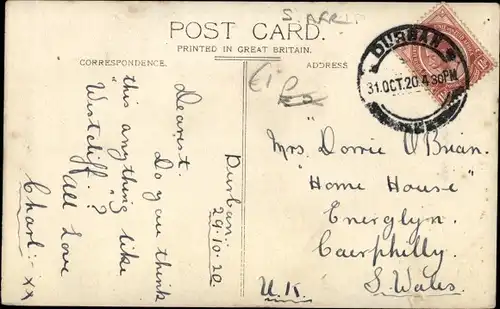 S. AFR
POST CARD.
PRINTED IN GREAT BRITAIN.
CORRESPONDENCE.
ADDRESS
DURBAN
31.OCT.20.4 30PM
Durban:
29.10.20
Dearest.
Do you think
this anything like
"Westcliff"?
All Love
Charl: xx
Mrs Dorrie O'Brian.
"Home House"
Energlyn.
Caerphilly.
S. Wales.
U.K.